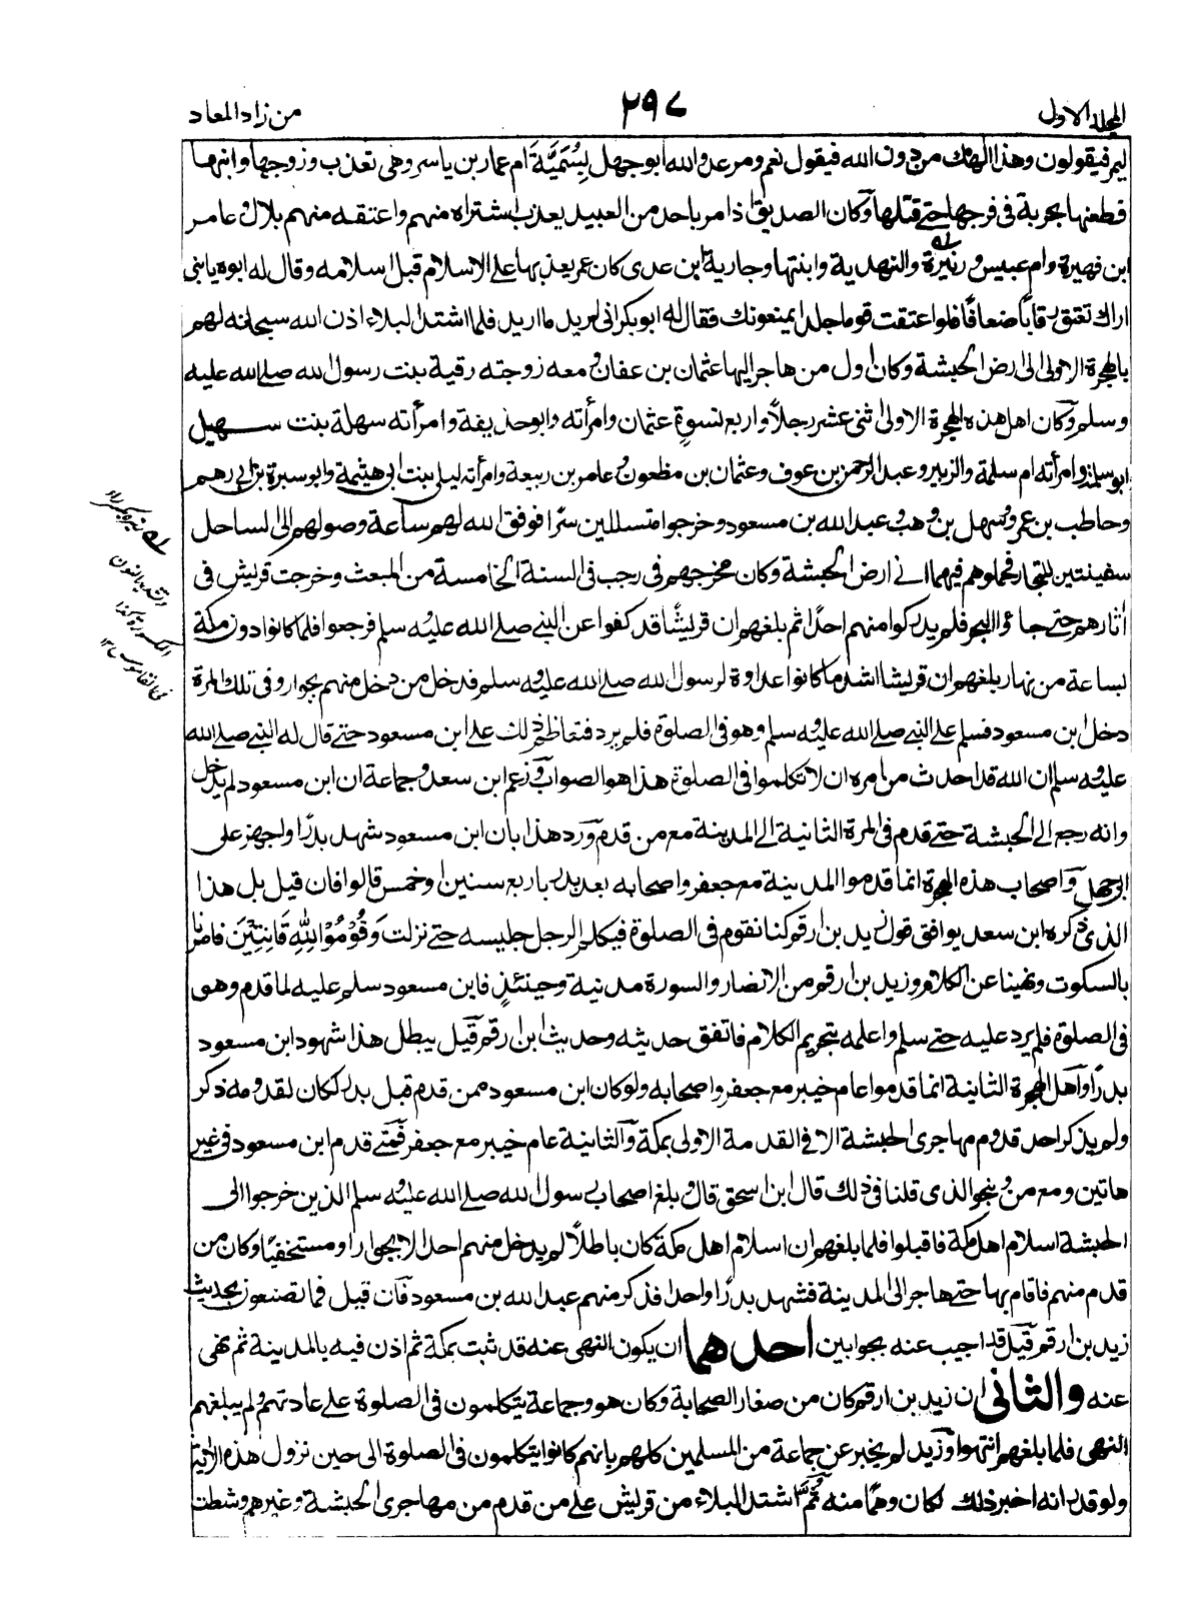 المجلد الاول
٢٩٧
من زاد المعاد
ليمر فيقولون وهذا الهك من دون الله فيقول نعم ومر عدو الله ابو جهل بِسُمَيَّةَ ام عمار بن ياسر وهى تعذب وزوجها وابنها
فطعنها بحربة فى فرجها حتى قتلها وكان الصديق اذا مر باحد من العبيد يعذب اشتراه منهم واعتقه منهم بلال وعامر
ابن فهيرة وام عبيس وزنيرة والنهدية وابنتها وجارية ابن عدى كان عمر يعذبها على الاسلام قبل اسلامه وقال له ابوه يابنى
اراك تعتق رقاباً ضعافاً فلو اعتقت قوما جلدا يمنعونك فقال له ابو بكر انى اريد ما اريد فلما اشتد البلاء اذن الله سبحانه لهم
بالهجرة الاولى الى ارض الحبشة وكان اول من هاجر اليها عثمان بن عفان ومعه زوجته رقية بنت رسول الله صلى الله عليه
وسلم وكان اهل هذه الهجرة الاولى اثنى عشر رجلاً واربع نسوةٍ عثمان وامرأته وابو حذيفة وامرأته سهلة بنت سهيل
ابو سلمة وامرأته ام سلمة والزبير وعبد الرحمن بن عوف وعثمان بن مظعون وعامر بن ربيعة وامرأته ليلى بنت ابى هيثمة وابو سبرة بن ابى رهم
وحاطب بن عمرو وسهل بن وهب وعبد الله بن مسعود وخرجوا متسللين سرّا فوفق الله لهم ساعة وصولهم الى الساحل
سفينتين للتجار فحملوهم فيهما الى ارض الحبشة وكان مخرجهم فى رجب فى السنة الخامسة من المبعث وخرجت قريش فى
اثارهم حتى جاؤا البحر فلم يدركوا منهم احدًا ثم بلغهم ان قريشًا قد كفوا عن النبى صلى الله عليه وسلم فرجعوا فلما كانوا دون مكة
بساعة من نهار بلغهم ان قريشا اشد ما كانوا عداوة لرسول الله صلى الله عليه وسلم فدخل من دخل منهم بجوار وفى تلك المرة
دخل ابن مسعود فسلم على النبى صلى الله عليه وسلم وهو فى الصلوة فلم يرد فتعاظم ذلك على ابن مسعود حتى قال له النبى صلى الله
عليه وسلم ان الله قد احدث من امره ان لا تكلموا فى الصلوة هذا هو الصواب وزعم ابن سعد وجماعة ان ابن مسعود لم يدخل
وانه رجع الى الحبشة حتى قدم فى المرة الثانية الى المدينة مع من قدم ورد هذا بان ابن مسعود شهد بدرًا واجهز على
ابى جهل واصحاب هذه الهجرة انما قدموا المدينة مع جعفر واصحابه بعد بدر باربع سنين او خمس قالوا فان قيل بل هذا
الذى ذكره ابن سعد يوافق قول زيد بن ارقم كنا نقوم فى الصلوة فيكلم الرجل جليسه حتى نزلت وَقُوْمُوْا لِلّٰهِ قَانِتِيْنَ فامرنا
بالسكوت ونهينا عن الكلام وزيد بن ارقم من الانصار والسورة مدنية وحينئذٍ فابن مسعود سلم عليه لما قدم وهو
فى الصلوة فلم يرد عليه حتى سلم واعلمه بتحريم الكلام فاتفق حديثه وحديث ابن ارقم قيل يبطل هذا شهود ابن مسعود
بدرًا واهل الهجرة الثانية انما قدموا عام خيبر مع جعفر واصحابه ولو كان ابن مسعود ممن قدم قبل بدر لكان لقدومه ذكر
ولم يذكر احد قدوم مهاجرى الحبشة الا فى القدمة الاولى بمكة والثانية عام خيبر مع جعفر فمتى قدم ابن مسعود فى غير
هاتين ومع من وبنحو الذى قلنا فى ذلك قال ابن اسحق قال وبلغ اصحاب رسول الله صلى الله عليه وسلم الذين خرجوا الى
الحبشة اسلام اهل مكة فاقبلوا فلما بلغهم ان اسلام اهل مكة كان باطلاً لم يدخل منهم احد الا بجوار او مستخفيًا وكان من
قدم منهم فاقام بها حتى هاجر الى المدينة فشهد بدرًا واحدا فذكر منهم عبد الله بن مسعود فان قيل فما تصنعون بحديث
زيد بن ارقم قيل قد اجيب عنه بجوابين احدهما ان يكون النهى عنه قد ثبت بمكة ثم اذن فيه بالمدينة ثم نهى
عنه والثانى ان زيد بن ارقم كان من صغار الصحابة وكان هو وجماعة يتكلمون فى الصلوة على عادتهم ولم يبلغهم
النهى فلما بلغهم انتهوا وزيد لم يخبر عن جماعة من المسلمين كلهم بانهم كانوا يتكلمون فى الصلوة الى حين نزول هذه الاية
ولو قدر انه اخبر بذلك لكان وهمًا منه ثم اشتد البلاء من قريش على من قدم من مهاجرى الحبشة وغيرهم وشطت